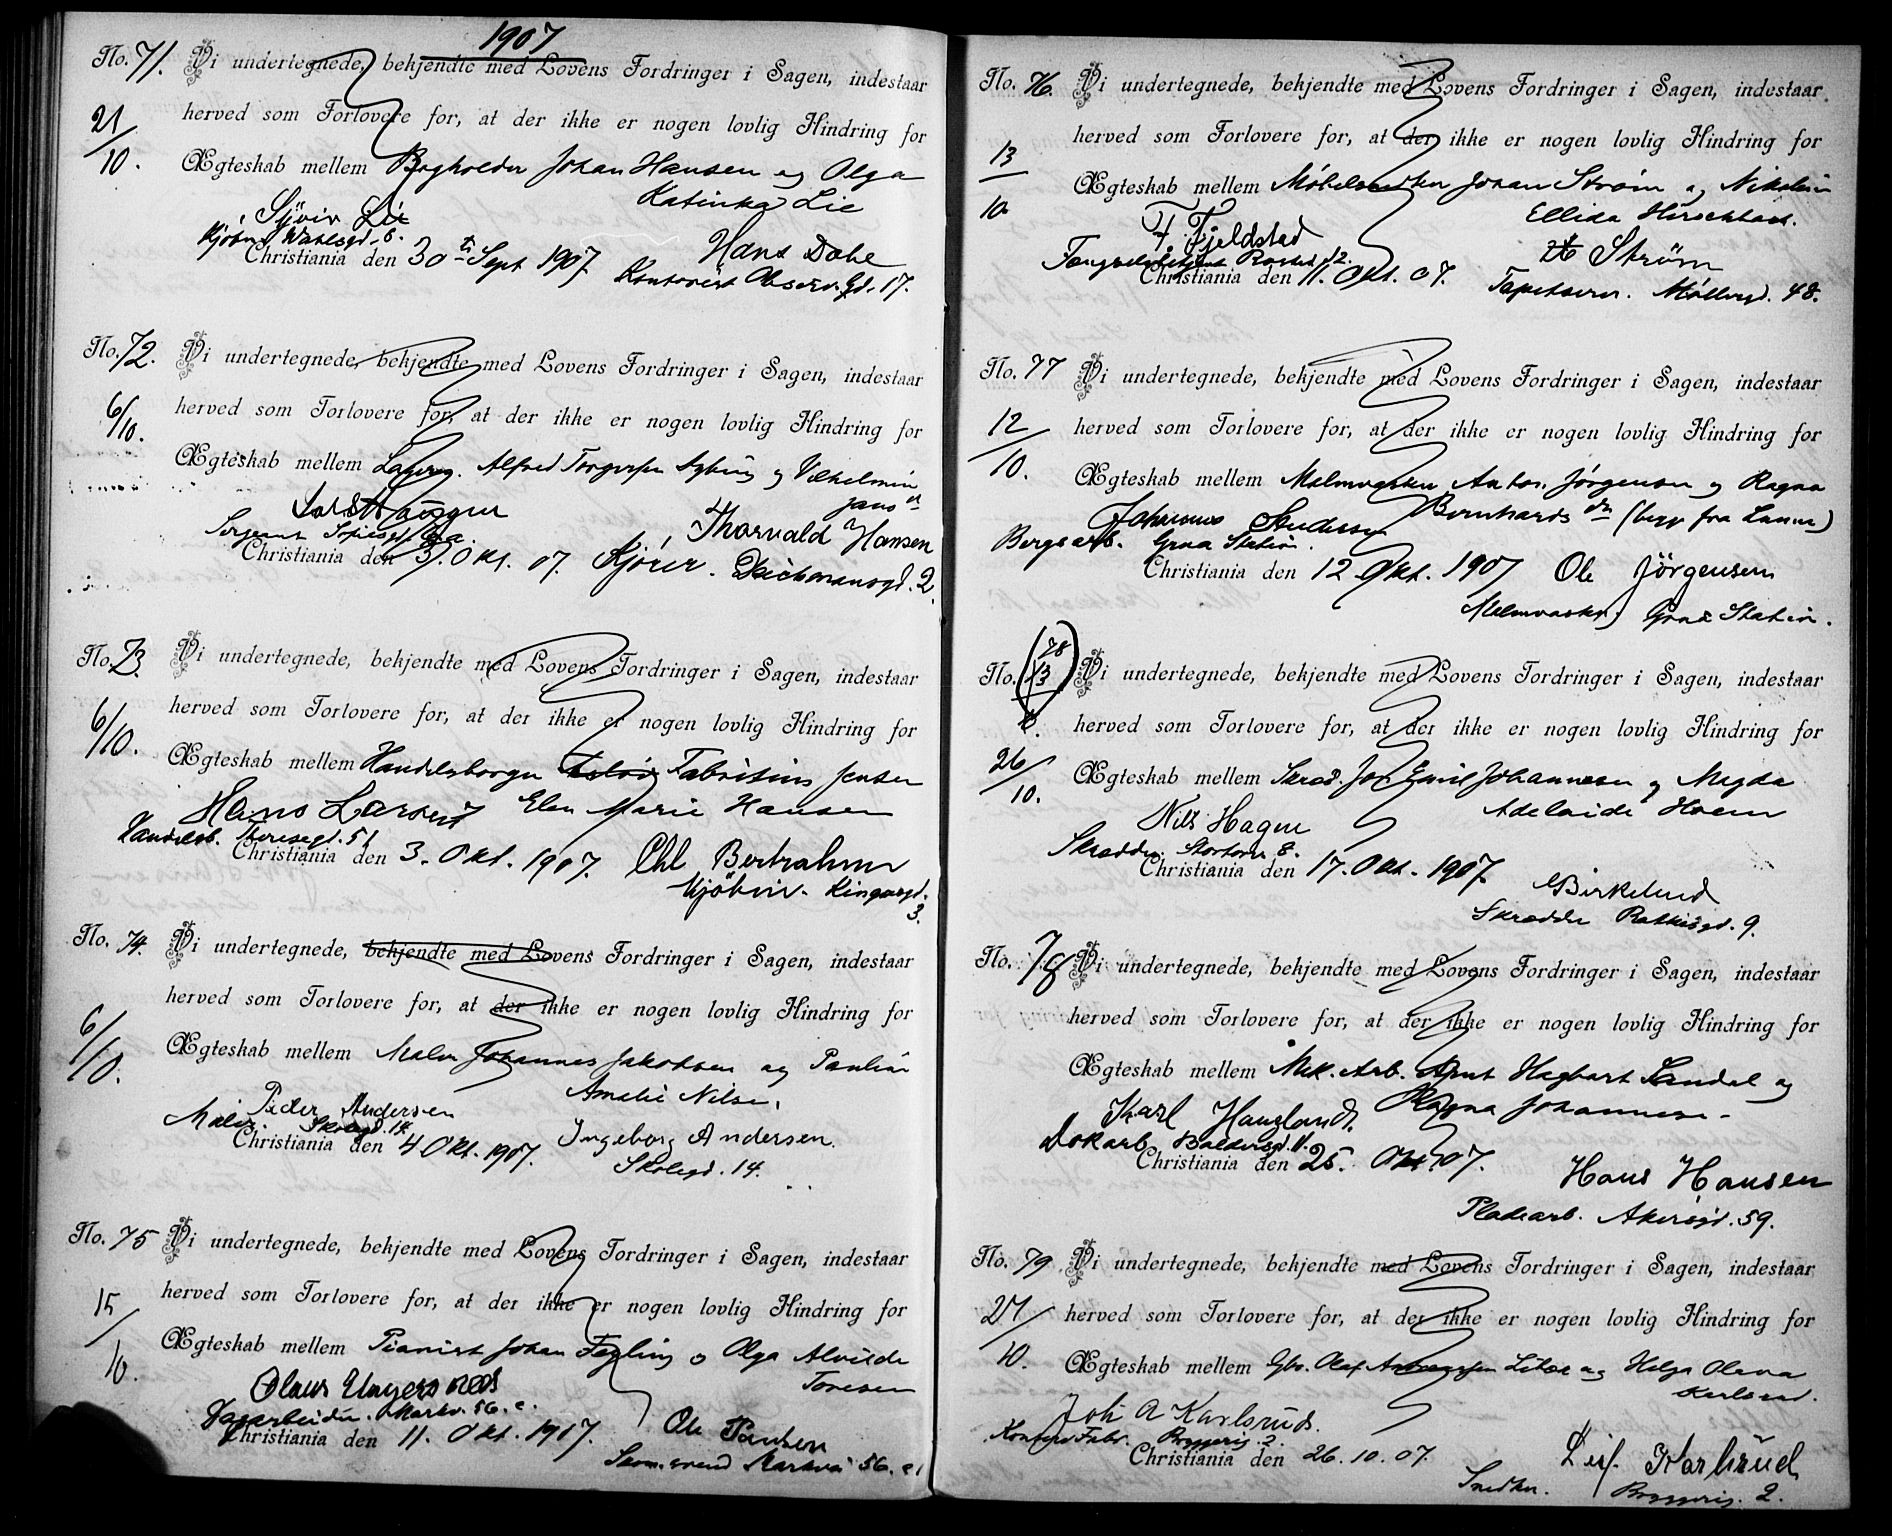 1907
No. 71. Vi undertegnede, bekjendte med Lovens Fordringer i Sagen, indestaar
21/10. herved som Forlovere for, at der ikke er nogen lovlig Hindring for
Ægteskab mellem Bogholder Johan Hansen og Olga
Katinka Lie
Lie
Hans Dahe
Christiania den 30te Sept 1907
Kontorist Observ. Gd. 17.
No. 72. Vi undertegnede, bekjendte med Lovens Fordringer i Sagen, indestaar
6/10. herved som Forlovere for, at der ikke er nogen lovlig Hindring for
Ægteskab mellem Alfred og Vilhelmin
Thorvald Hansen
Sergeant
Christiania den 3. Okt. 07. Kjører. Deichmansgd. 2.
No. 73. Vi undertegnede, bekjendte med Lovens Fordringer i Sagen, indestaar
6/10. herved som Forlovere for, at der ikke er nogen lovlig Hindring for
Ægteskab mellem Handelsborger Fabritius Jensen
Hans Larsen Elen Marie Hansen
Handelsb. Theresegd. 51
Christiania den 3. Okt. 1907. Chl Bertrahm
Kjøbm. Kingosgd. 3.
No. 74. Vi undertegnede, bekjendte med Lovens Fordringer i Sagen, indestaar
6/10. herved som Forlovere for, at der ikke er nogen lovlig Hindring for
Ægteskab mellem Maler Johannes Jakobsen og Pauline
Amalie Nilsen.
Peder Andersen
Maler. Skolegd. 14.
Christiania den 4 Okt. 1907. Ingeborg Andersen.
Skolegd. 14.
No. 75 Vi undertegnede, bekjendte med Lovens Fordringer i Sagen, indestaar
15/10. herved som Forlovere for, at der ikke er nogen lovlig Hindring for
Ægteskab mellem Pianist Johan Fegling o Olga Alvilde
Toresen
Olaus
Markv. 56. c.
Christiania den 11. Okt. 1907. Ole Paulsen
56. c
No. 76. Vi undertegnede, bekjendte med Lovens Fordringer i Sagen, indestaar
13/10. herved som Forlovere for, at der ikke er nogen lovlig Hindring for
Ægteskab mellem Møbelsnedker Johan Strøm og Nikoline
Ellida
F. Fjeldstad
Strøm
Christiania den 11. Okt. 07. Tapetserer. Møllergd. 48.
No. 77 Vi undertegnede, bekjendte med Lovens Fordringer i Sagen, indestaar
12/10. herved som Forlovere for, at der ikke er nogen lovlig Hindring for
Ægteskab mellem Melmvasker Anton Jørgensen og Ragna
Bernhardsdn (begge fra Lunner)
Johannes
Bergsarb. Grua Station.
Christiania den 12 Okt. 1907 Ole Jörgensen
Grua Station.
No. (78 13/10.) Vi undertegnede, bekjendte med Lovens Fordringer i Sagen, indestaar
26/10. herved som Forlovere for, at der ikke er nogen lovlig Hindring for
Ægteskab mellem Skræd. Jon Emil Johannesen og Magda
Adelaide Hoem
Nils Hagen
Skrædder. Stortorv. 8.
Christiania den 17. Okt. 1907. Birkelund
Skrædder 9.
No. 78 Vi undertegnede, bekjendte med Lovens Fordringer i Sagen, indestaar
herved som Forlovere for, at der ikke er nogen lovlig Hindring for
Ægteskab mellem Mek. Arb. Arnt Hagbart Sandal og
Ragna Johannesen
Karl Haugland.
Dokarb. Baldersgd. 11.
Christiania den 25. Okt. 07.
Hans Hansen
Pladearb. Akersgd. 59.
No. 79 Vi undertegnede, bekjendte med Lovens Fordringer i Sagen, indestaar
27/10. herved som Forlovere for, at der ikke er nogen lovlig Hindring for
Ægteskab mellem Olaf og Helga Olava
Karlsrud.
Joh A Karlsrud.
Bryggerig. 2.
Christiania den 26.10.07. Leif. Karlsrud
Snedker. Bryggerig. 2.